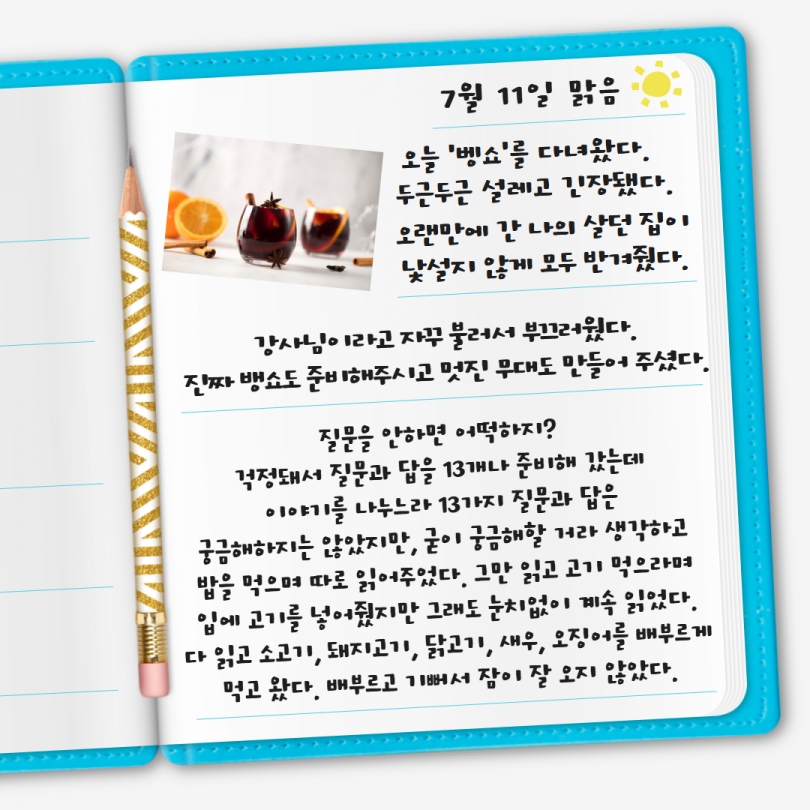 7월 11일 맑음
오늘 '벵쇼'를 다녀왔다.
두근두근 설레고 긴장됐다.
오랜만에 간 나의 살던 집이
낯설지 않게 모두 반겨줬다.
강사님이라고 자꾸 불러서 부끄러웠다.
진짜 뱅쇼도 준비해주시고 멋진 무대도 만들어 주셨다.
질문을 안하면 어떡하지?
걱정돼서 질문과 답을 13개나 준비해 갔는데
이야기를 나누느라 13가지 질문과 답은
궁금해하지는 않았지만, 굳이 궁금해할 거라 생각하고
밥을 먹으며 따로 읽어주었다. 그만 읽고 고기 먹으라며
입에 고기를 넣어줬지만 그래도 눈치없이 계속 읽었다.
다 읽고 소고기, 돼지고기, 닭고기, 새우, 오징어를 배부르게
먹고 왔다. 배부르고 기뻐서 잠이 잘 오지 않았다.